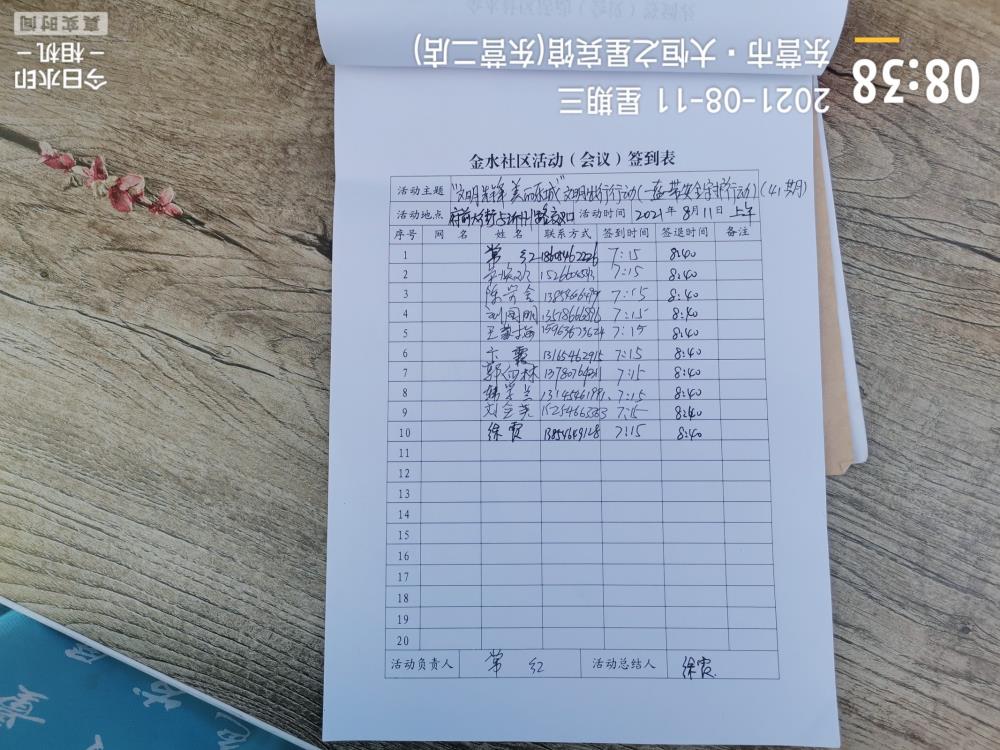 08:38
2021-08-11 星期三
东营市·大恒之星宾馆(东营二店)
今日水印
相机
真实时间
金水社区活动（会议）签到表
活动主题 "文明先锋 美丽东城"文明出行行动(一盔一带安全守护行动)(41期)
活动地点 府前大街与沂州路交叉口 活动时间 2021年8月11日 上午
序号 网 名 姓 名 联系方式 签到时间 签退时间 备注
1 常 红 7:15 8:40
2 7:15 8:40
3 7:15 8:40
4 刘国明 7:15 8:40
5 15963673624 7:15 8:40
6 卞霞 13165462915 7:15 8:40
7 7:15 8:40
8 7:15 8:40
9 7:15 8:40
10 徐霞 13854649128 7:15 8:40
11
12
13
14
15
16
17
18
19
20
活动负责人 常 红 活动总结人 徐霞